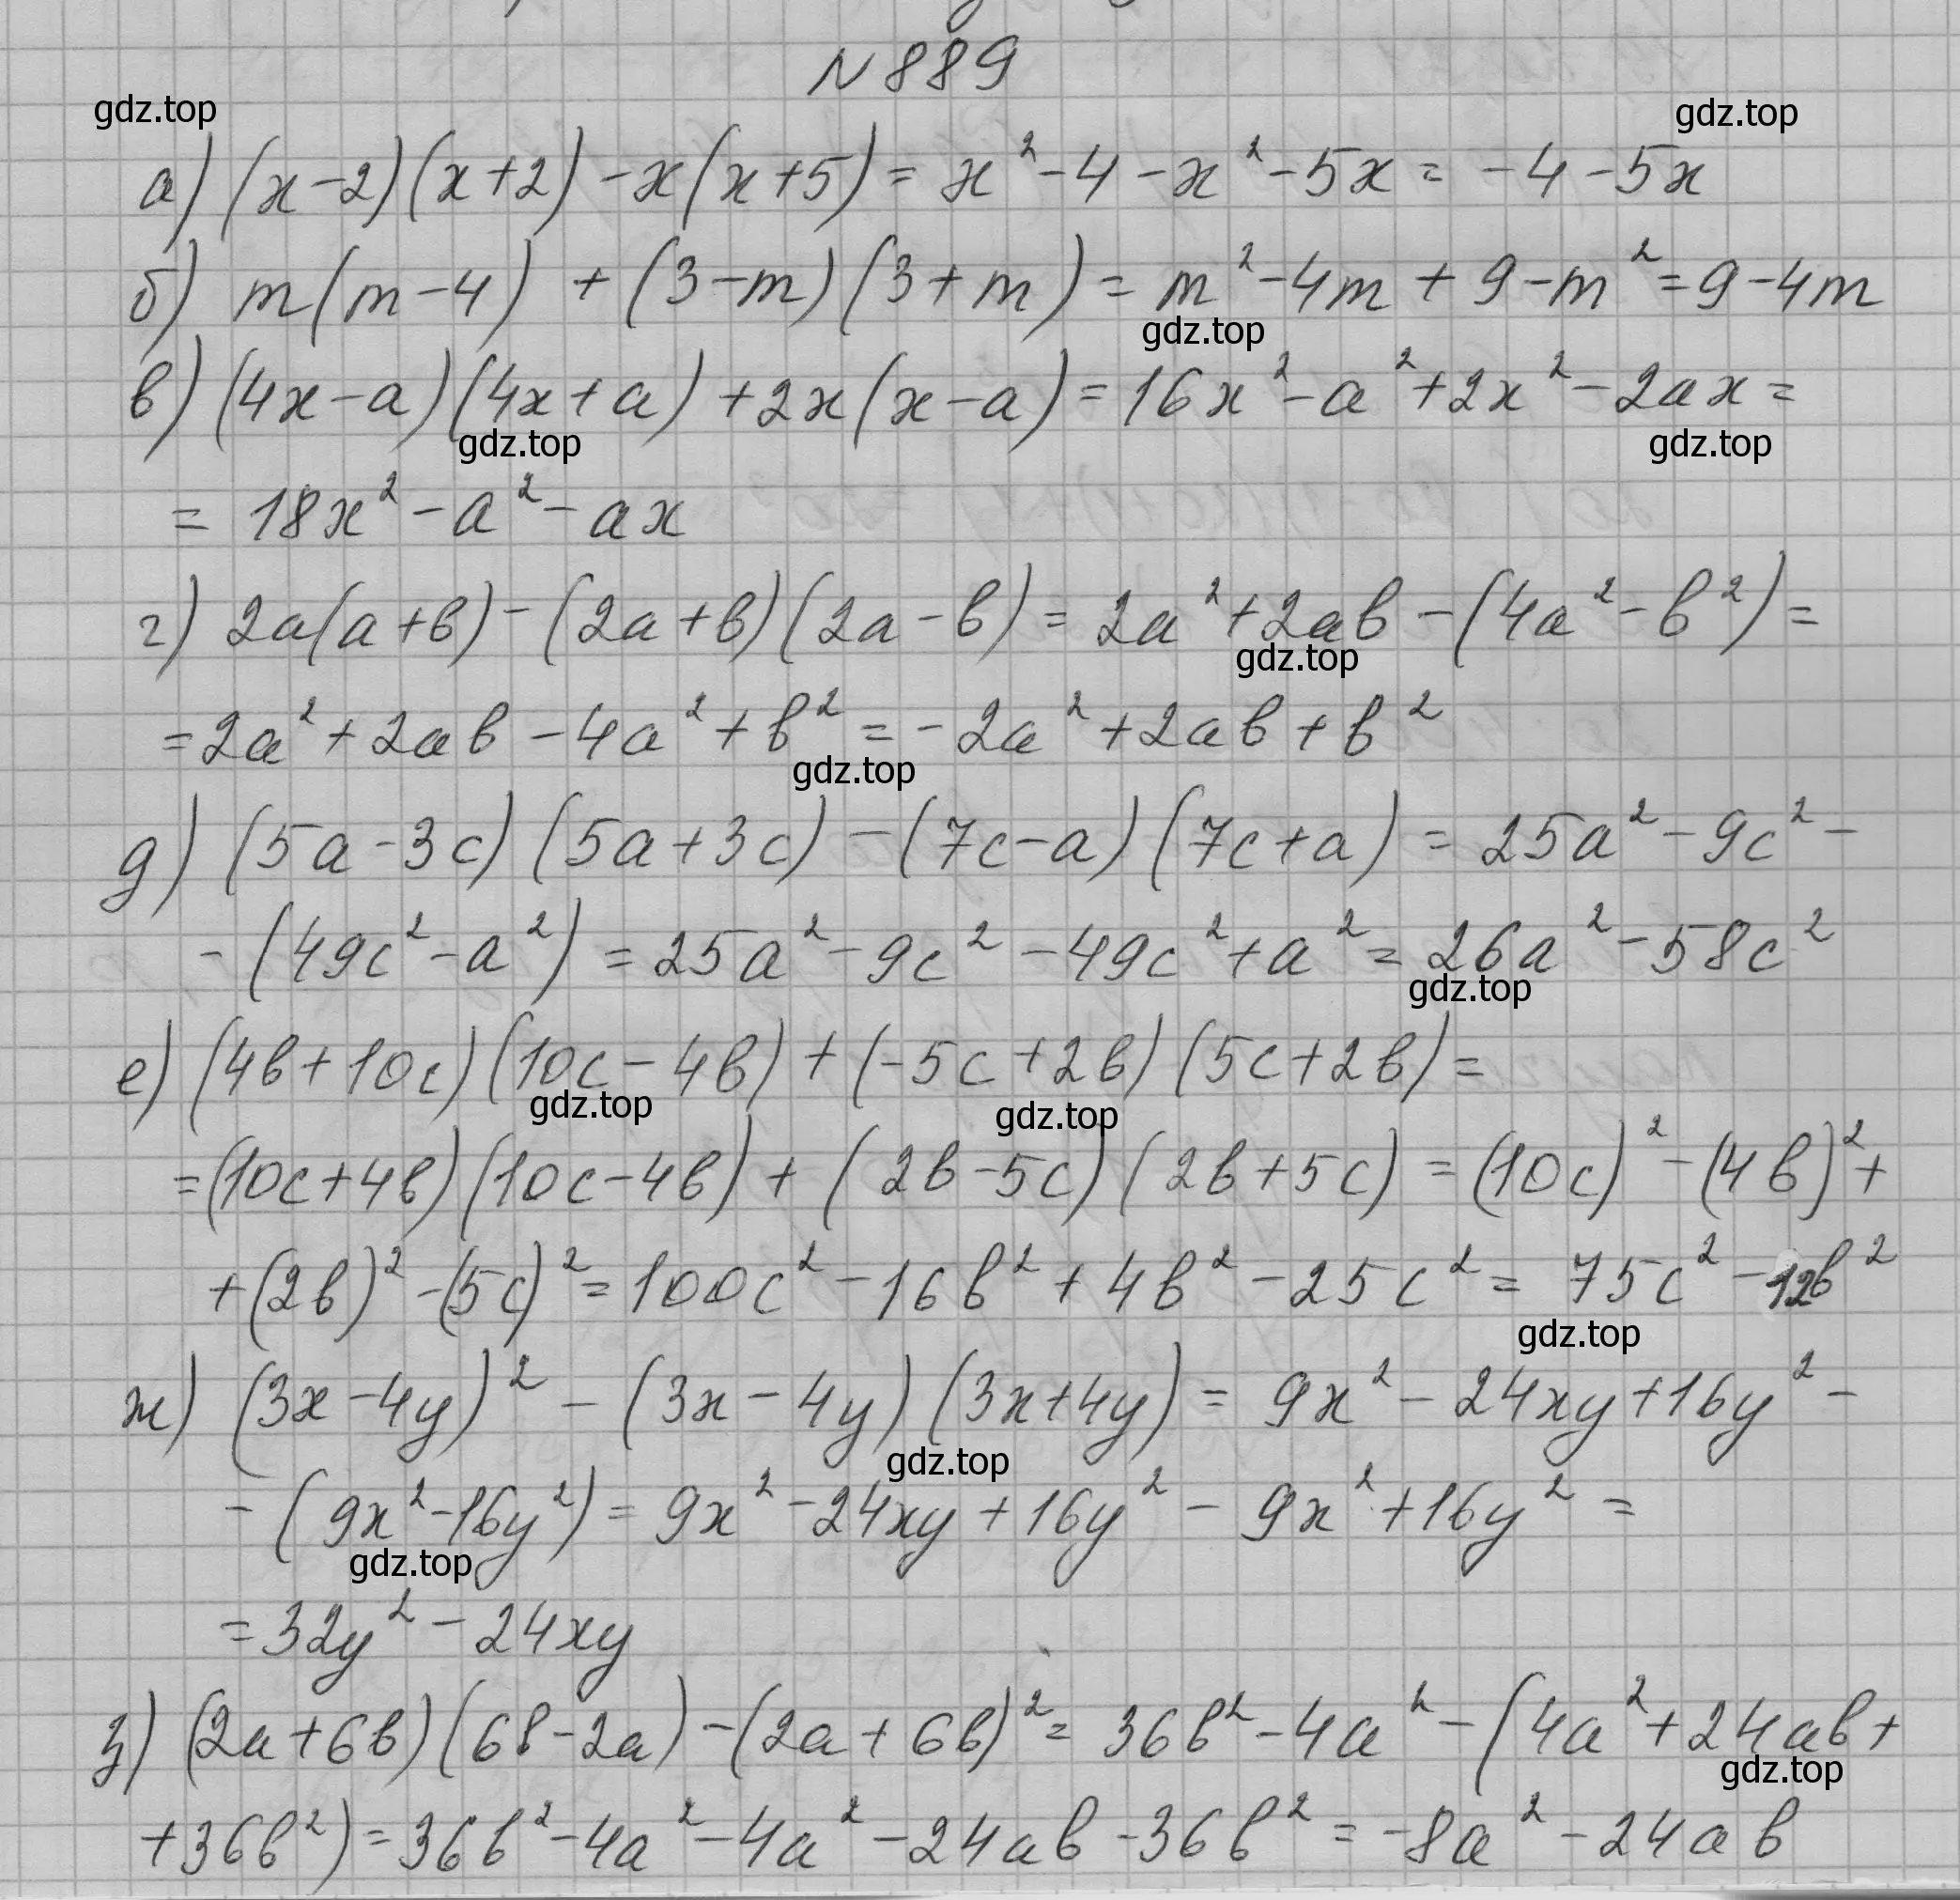 N 889
gdz.top gdz.top
а) (x-2)(x+2) - x(x+5) = x² - 4 - x² - 5x = -4 - 5x
б) m(m-4) + (3-m)(3+m) = m² - 4m + 9 - m² = 9 - 4m
gdz.top
в) (4x-a)(4x+a) + 2x(x-a) = 16x² - a² + 2x² - 2ax =
gdz.top gdz.top
= 18x² - a² - ax
г) 2a(a+b) - (2a+b)(2a-b) = 2a² + 2ab - (4a² - b²) =
gdz.top
= 2a² + 2ab - 4a² + b² = -2a² + 2ab + b²
gdz.top
д) (5a-3c)(5a+3c) - (7c-a)(7c+a) = 25a² - 9c² -
- (49c² - a²) = 25a² - 9c² - 49c² + a² = 26a² - 58c²
gdz.top
е) (4b+10c)(10c-4b) + (-5c+2b)(5c+2b) =
gdz.top gdz.top
= (10c+4b)(10c-4b) + (2b-5c)(2b+5c) = (10c)² - (4b)² +
+ (2b)² - (5c)² = 100c² - 16b² + 4b² - 25c² = 75c² - 12b²
gdz.top
ж) (3x-4y)² - (3x-4y)(3x+4y) = 9x² - 24xy + 16y² -
gdz.top
- (9x² - 16y²) = 9x² - 24xy + 16y² - 9x² + 16y² =
gdz.top
= 32y² - 24xy
з) (2a+6b)(6b-2a) - (2a+6b)² = 36b² - 4a² - (4a² + 24ab +
gdz.top
+ 36b²) = 36b² - 4a² - 4a² - 24ab - 36b² = -8a² - 24ab